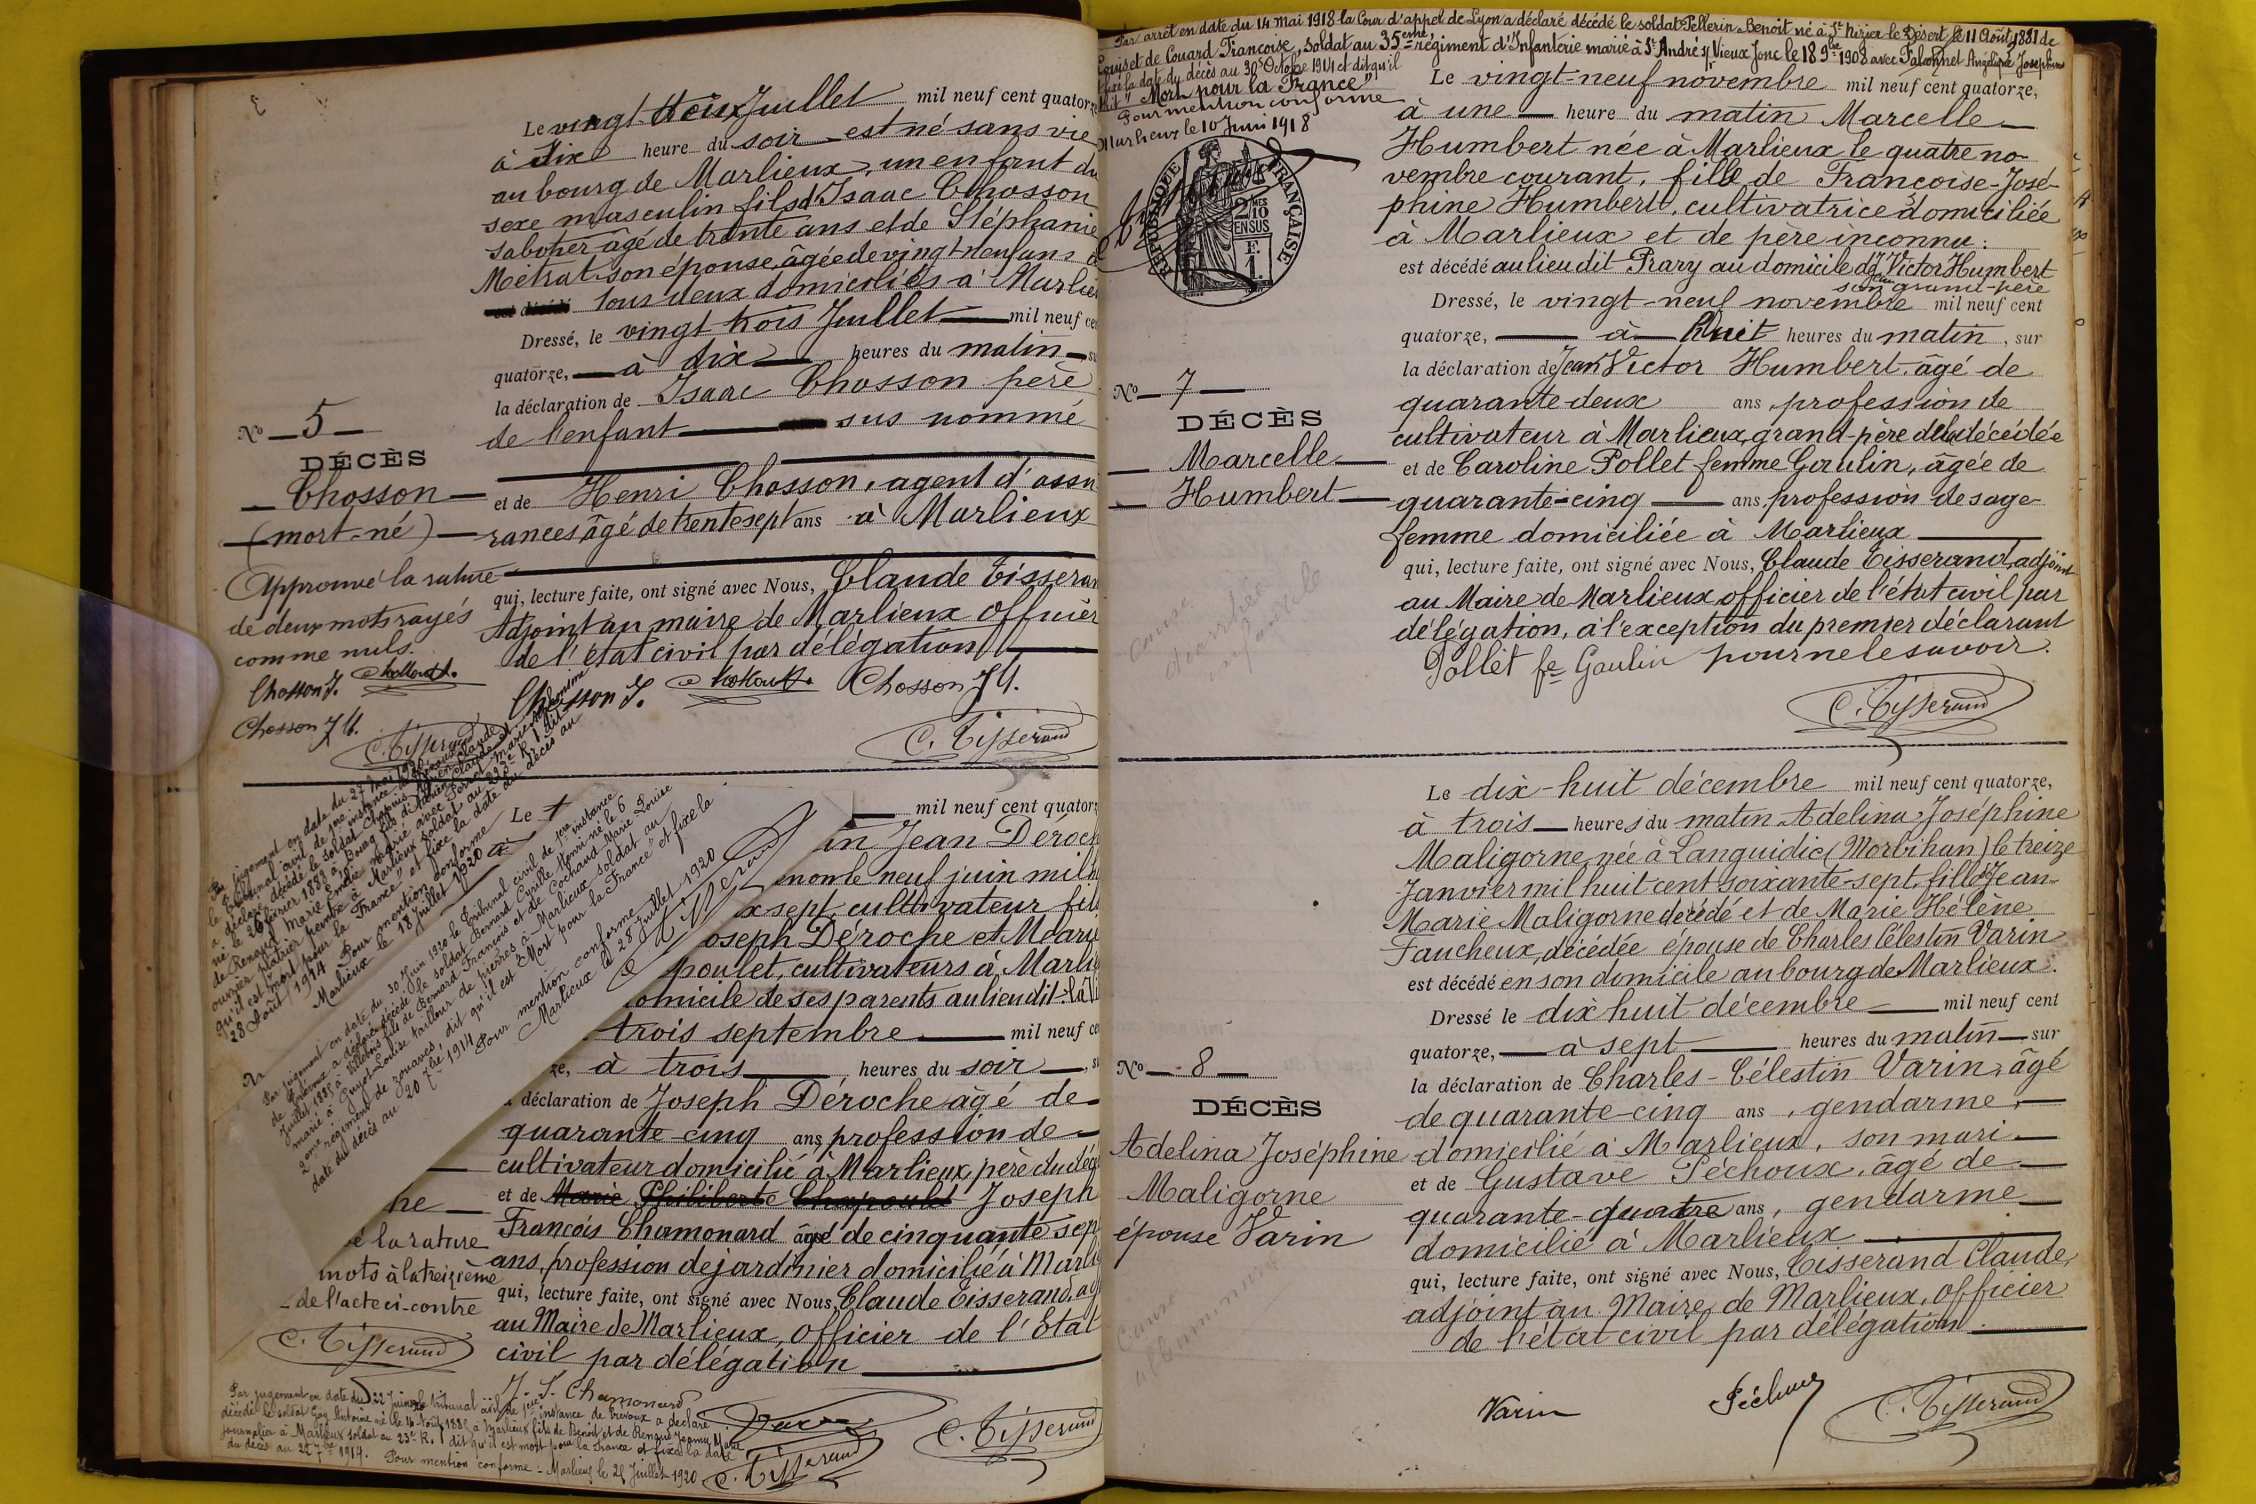 Le vingt-trois Juillet mil neuf cent quatorze
à dix heure du soir est né sans vie
au bourg de Marlieux, un enfant du
sexe masculin fils d'Isaac Chosson
sabotier âgé de trente ans et de Stéphanie
Métrat son épouse, âgée de vingt-neuf ans
tous deux domiciliés à Marlieu
Dressé, le vingt trois Juillet mil neuf ce
quatorze, à dix heures du matin
la déclaration de Isaac Chosson père
de l'enfant sus nommé
et de Henri Chosson, agent d'assu
rances âgé de trente sept ans à Marlieux
qui, lecture faite, ont signé avec Nous, Claude Tisseran
Adjoint au maire de Marlieux Officier
de l'état civil par délégation
Chosson J. Chosson J H.
C. Tisserand
No 5
DÉCÈS
Chosson
(mort-né)
Approuvé la rature
de deux mots rayés
comme nuls.
Chosson J.
Chosson J H.
C. Tisserand
Par jugement en date du 27 Mai 1920
le Tribunal civil de 1ère instance
a déclaré décédé le soldat Chapuis
né le 26 février 1883 à Bourg
ouvrier plâtrier
qu'il est "mort pour la France" et fixe la date du décès au
28 Août 1914 Pour mention conforme
Marlieux le 18 Juillet 1920
Par jugement en date du 30 Juin 1920 le Tribunal civil de 1ère instance
a déclaré décédé le soldat Bernard Cyrille Henri né le 6
Juillet 1885 à Villebois fils de Bernard François et de Cochaud Marie Louise
marié à Guyot Louise tailleur de pierres à Marlieux soldat au
2eme régiment de zouaves, dit qu'il est "Mort pour la France" et fixe la
date du décès au 20 7bre 1914 Pour mention conforme
Marlieux le 28 Juillet 1920
Le
mil neuf cent quatorz
in Jean Déroch
le neuf juin mil
x sept, cultivateur fil
oseph Déroche et Mari
poulet, cultivateurs à Marli
omicile de ses parents au lieu dit
trois septembre mil neuf ce
ze, à trois heures du soir
déclaration de Joseph Déroche âgé de
quarante cinq ans, profession de
cultivateur domicilié à Marlieux, père du
et de Marie Philiberte Chapoulet Joseph
François Chamonard âgé de cinquante sep
ans, profession de jardinier domicilié à Marli
qui, lecture faite, ont signé avec Nous, Claude Tisserand, ad
au Maire de Marlieux, Officier de l'Etat
civil par délégation
he
é la rature
mots à la treizième
de l'acte ci-contre
C. Tisserand
J. F. Chamonard
C. Tisserand
C. Tisserand
Par jugement en date du 22 Juin le tribunal civil de 1ère instance de Trévoux a déclaré
décédé le soldat Gay Antoine né le 10 Août 1889 à Marlieux fils de Benoît et de Renoux Jeanne Marie
journalier à Marlieux soldat au 23e R.I dit qu'il est mort pour la France et fixe la date
du décès au 22 7bre 1914. Pour mention conforme : Marlieux le 28 Juillet 1920
Par arrêt en date du 14 mai 1918 la Cour d'appel de Lyon a déclaré décédé le soldat Pellerin Benoît né à St Nizier-le-Désert le 11 Août 1881 de
Louis et de Couard Françoise, soldat au 35eme régiment d'Infanterie marié à St André s/ Vieux Jonc le 18 9bre 1908 avec Falconnet Angélique Joséphine
fixé la date du décès au 30 Octobre 1914 et dit qu'il
est "Mort pour la France"
Pour mention conforme
Marlieux le 10 Juin 1918
RÉPUBLIQUE FRANÇAISE
2 MES
10
EN SUS
F.
1.
Le vingt-neuf novembre mil neuf cent quatorze,
à une heure du matin Marcelle
Humbert née à Marlieux le quatre no-
vembre courant, fille de Françoise-José-
phine Humbert, cultivatrice domiciliée
à Marlieux et de père inconnu.
est décédé au lieu dit Prary au domicile de Jean Victor Humbert
son grand-père
Dressé, le vingt-neuf novembre mil neuf cent
quatorze, à huit heures du matin, sur
la déclaration de Jean Victor Humbert, âgé de
quarante deux ans, profession de
cultivateur à Marlieux, grand-père de la décédée
et de Caroline Pollet femme Goulin, âgée de
quarante-cinq ans, profession de sage-
femme domiciliée à Marlieux
qui, lecture faite, ont signé avec Nous, Claude Tisserand, adjoint
au Maire de Marlieux officier de l'état civil par
délégation, à l'exception du premier déclarant
Pollet fe Goulin pour ne le savoir.
C. Tisserand
No 7
DÉCÈS
Marcelle
Humbert
Cause
diarrhée
infantile
Le dix-huit décembre mil neuf cent quatorze,
à trois heures du matin Adelina Joséphine
Maligorne, née à Languidic (Morbihan) le treize
Janvier mil huit cent soixante-sept, fille de Jean-
Marie Maligorne décédé et de Marie Hélène
Faucheux, décédée épouse de Charles Célestin Varin
est décédé en son domicile au bourg de Marlieux.
Dressé le dix huit décembre mil neuf cent
quatorze, à sept heures du matin sur
la déclaration de Charles-Célestin Varin, âgé
de quarante-cinq ans, gendarme,
domicilié à Marlieux, son mari
et de Gustave Péchoux, âgé de
quarante-quatre ans, gendarme
domicilié à Marlieux
qui, lecture faite, ont signé avec Nous, Tisserand Claude,
adjoint au Maire de Marlieux, officier
de l'état civil par délégation.
Varin Péchoux C. Tisserand
No 8
DÉCÈS
Adelina Joséphine
Maligorne
épouse Varin
Cause
albuminurie